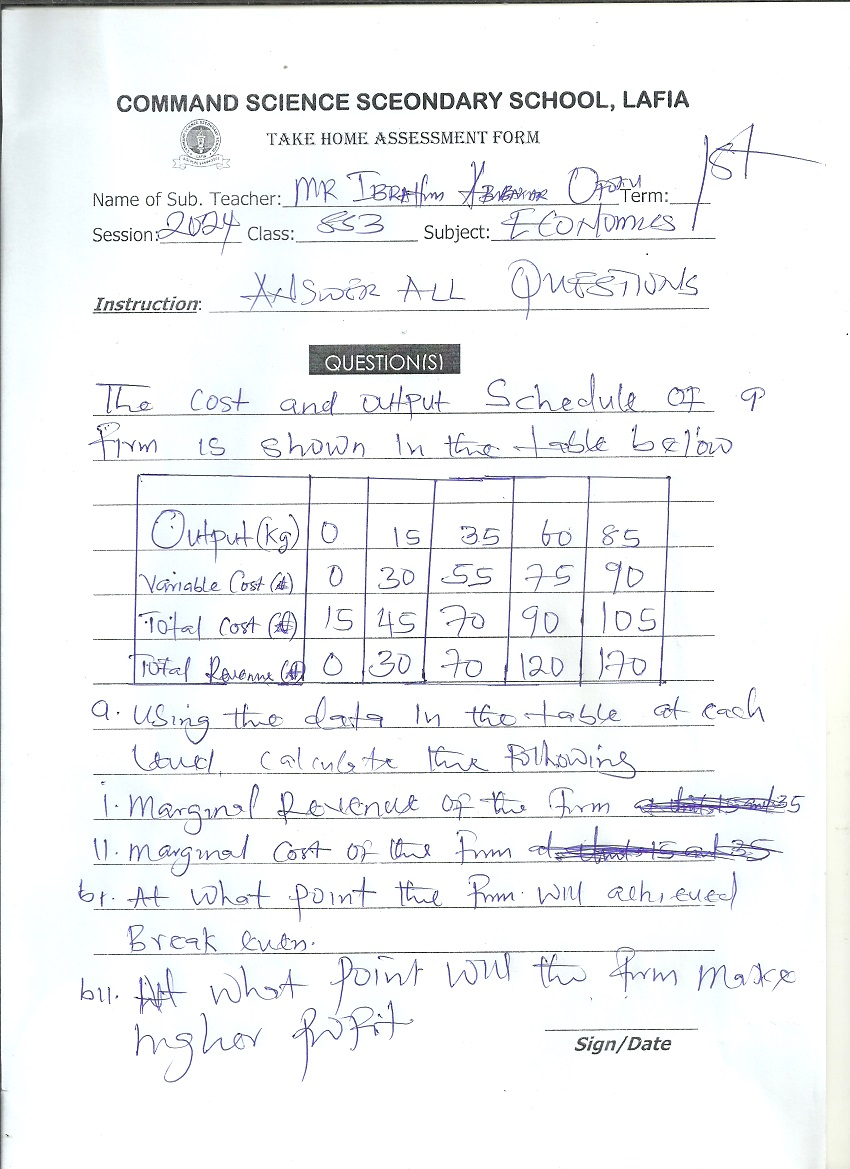 COMMAND SCIENCE SCEONDARY SCHOOL, LAFIA
TAKE HOME ASSESSMENT FORM
Name of Sub. Teacher: MR IBRAHIM Term: 1st
Session: 2024 Class: SS3 Subject: ECONOMICS
Instruction: ANSWER ALL QUESTIONS
QUESTION(S)
The cost and output Schedule of a
firm is shown in the table below
Output (kg) 0 15 35 60 85
Variable Cost (₦) 0 30 55 75 90
Total Cost (₦) 15 45 70 90 105
Total Revenue (₦) 0 30 70 120 170
a. Using the data in the table at each
level, calculate the following
i. Marginal Revenue of the firm
ii. Marginal Cost of the firm
bi. At what point the firm will achieved
Break even.
bii. At what point will the firm make
higher profit
Sign/Date